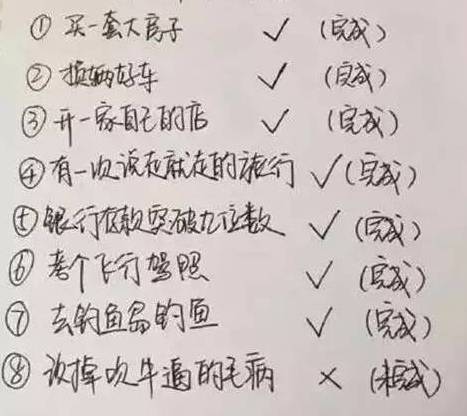 ① 买一套大房子 ✓ (完成)
② 换辆好车 ✓ (完成)
③ 开一家自己的店 ✓ (完成)
④ 有一次说走就走的旅行 ✓ (完成)
⑤ 银行存款突破九位数 ✓ (完成)
⑥ 考个飞行驾照 ✓ (完成)
⑦ 去钓鱼岛钓鱼 ✓ (完成)
⑧ 改掉吹牛逼的毛病 × (未完成)